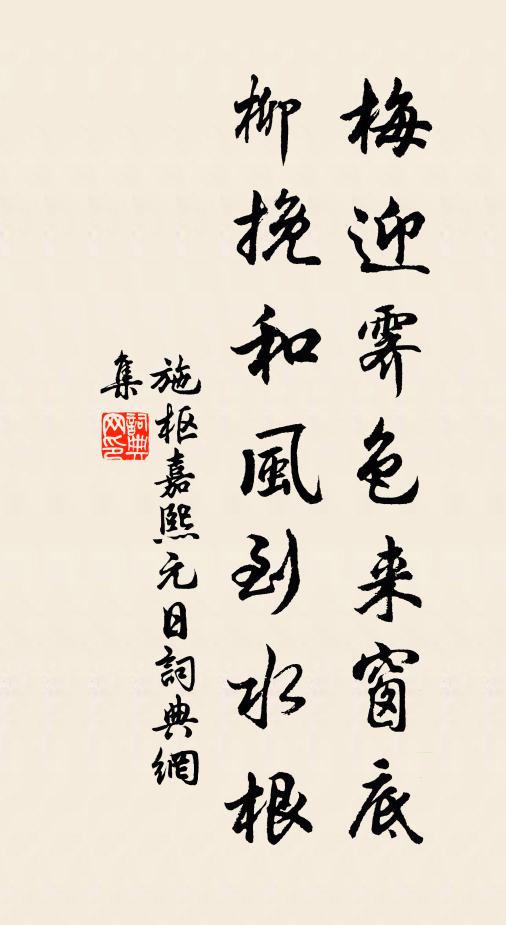 梅迎霽色来窗底
柳挽和風到水根
施枢嘉熙元日詞典網
集
詞典网印